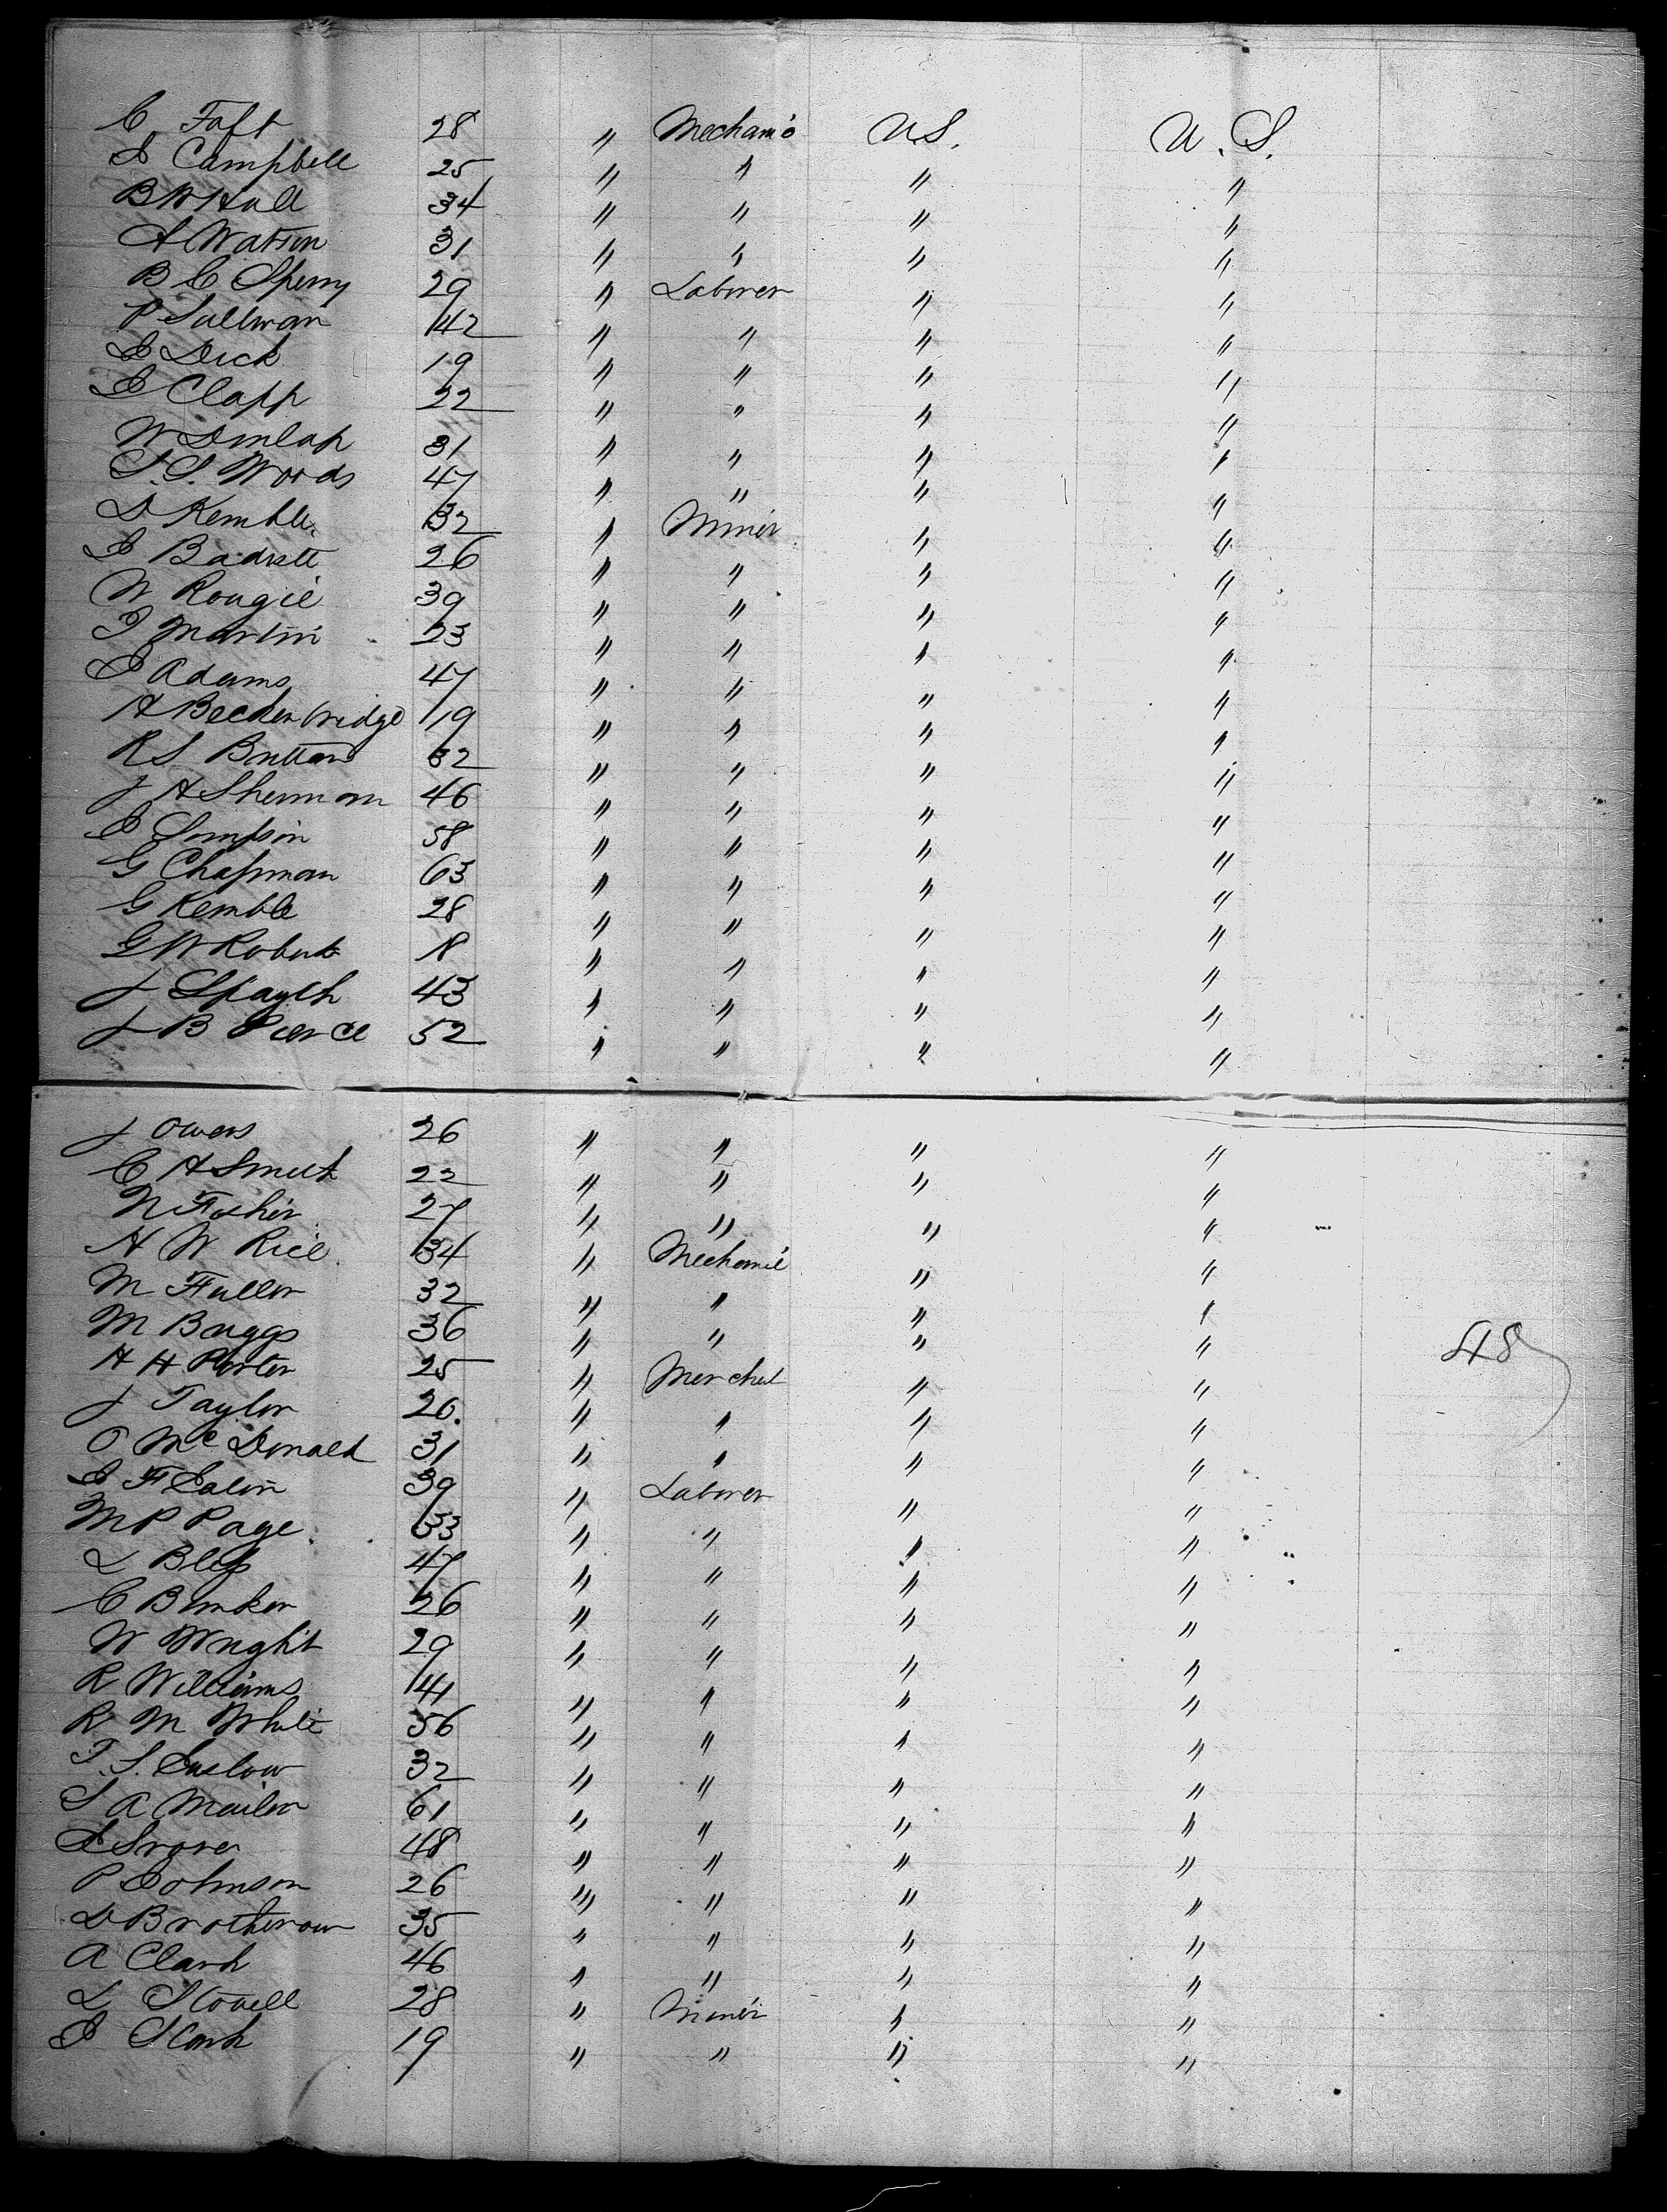 C Taft 28 " Mechanic U.S. U. S.
J Campbell 25 " " " "
B W Hall 34 " " " "
A Watson 31 " " " "
B C Sperry 29 " Laborer " "
P Sullivan 42 " " " "
J Dick 19 " " " "
J Clapp 22 " " " "
W Dunlap 31 " " " "
S. S. Woods 47 " " " "
D Kemble 32 " Miner " "
J 26 " " " "
W Rougie 39 " " " "
J Martin 23 " " " "
J Adams 47 " " " "
A Beckenbridge 19 " " " "
R S Britton 32 " " " "
J A Sherman 46 " " " "
J Simpson 58 " " " "
G Chapman 63 " " " "
G Kemble 28 " " " "
G W Roberts 18 " " " "
J Spayth 43 " " " "
J B Pierce 52 " " " "
J Owens 26 " " " "
C A Smith 22 " " " "
N Fisher 27 " " " "
H W Rice 34 " Mechanic " "
M Fuller 32 " " " "
M Baggs 36 " " " " 48
H H Porter 25 " Merchet " "
J Taylor 26. " " " "
O McDonald 31 " " " "
J F Eaton 39 " Laborer " "
M P Page 33 " " " "
L Bless 47 " " " "
C Bunker 26 " " " "
W Wright 29 " " " "
R Williams 41 " " " "
R M White 56 " " " "
T. S. Inslow 32 " " " "
S A Mailer 61 " " " "
J 48 " " " "
P Johnson 26 " " " "
D Brotherow 35 " " " "
A Clark 46 " " " "
L Stovell 28 " Miner " "
J Stark 19 " " " "